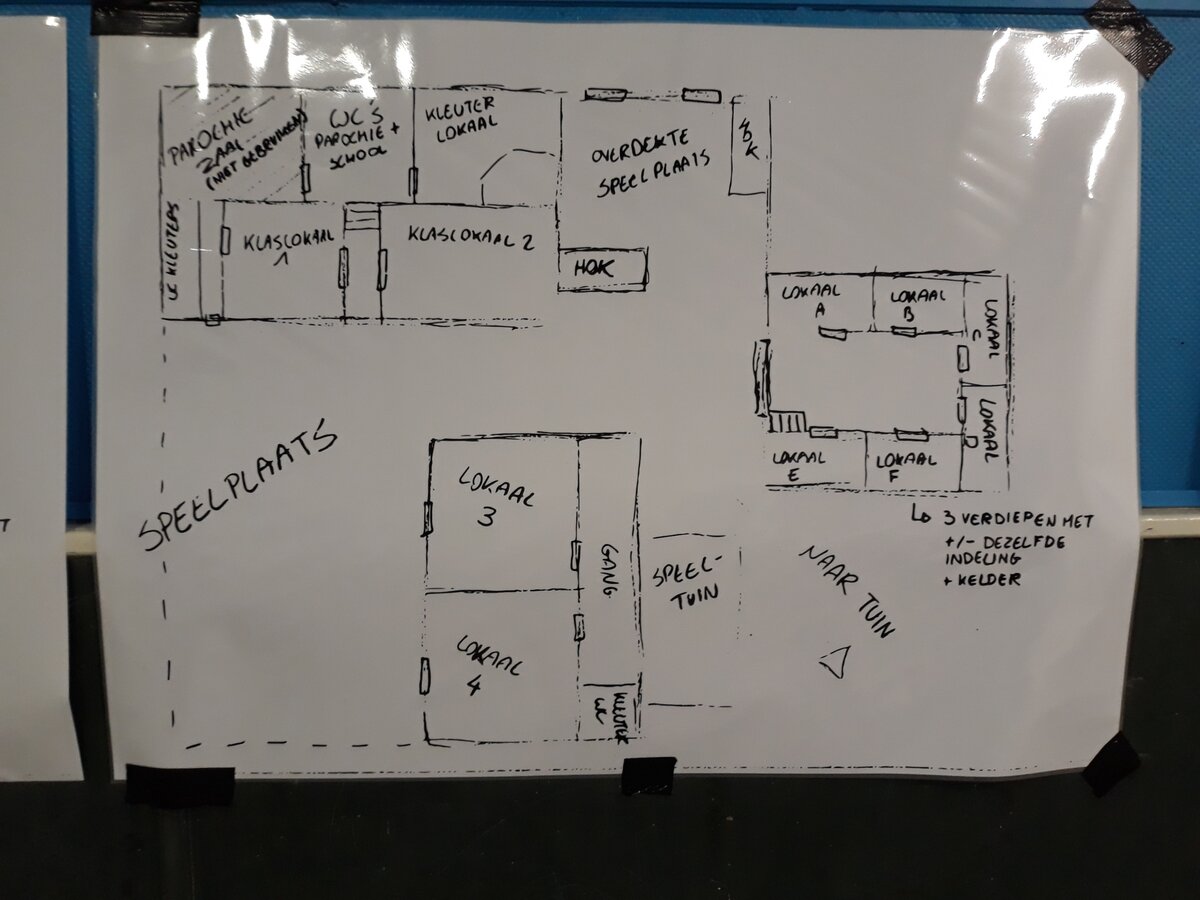 PAROCHIE
ZAAL
(NIET GEBRUIKEN)
WC'S
PAROCHIE +
SCHOOL
KLEUTER
LOKAAL
OVERDEKTE
SPEELPLAATS
KLASLOKAAL
1
KLASLOKAAL 2
HOK
LOKAAL
A
LOKAAL
B
LOKAAL
C
LOKAAL
D
LOKAAL
E
LOKAAL
F
3 VERDIEPEN MET
+/- DEZELFDE
INDELING
+ KELDER
SPEELPLAATS
LOKAAL
3
LOKAAL
4
GANG
KLEUTER
WC
SPEEL-
TUIN
NAAR TUIN
T